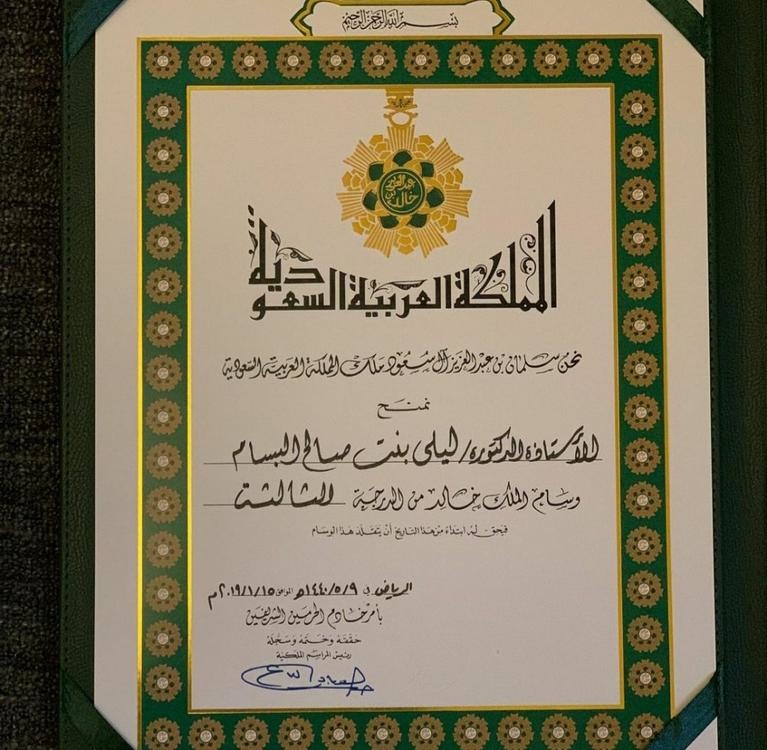 بسم الله الرحمن الرحيم
خالد بن عبدالعزيز
المملكة العربية السعودية
نحن سلمان بن عبدالعزيز آل سعود ملك المملكة العربية السعودية
نمنح
الأستاذة الدكتورة/ ليلى بنت صالح البسام
وسام الملك خالد من الدرجة الثالثة
فيحق له ابتداء من هذا التاريخ أن يتقلد هذا الوسام
الرياض في ١٤٤٠/٥/٩هـ الموافق ٢٠١٩/١/١٥م
بأمر خادم الحرمين الشريفين
حققه وختمه وسجله
رئيس المراسم الملكية